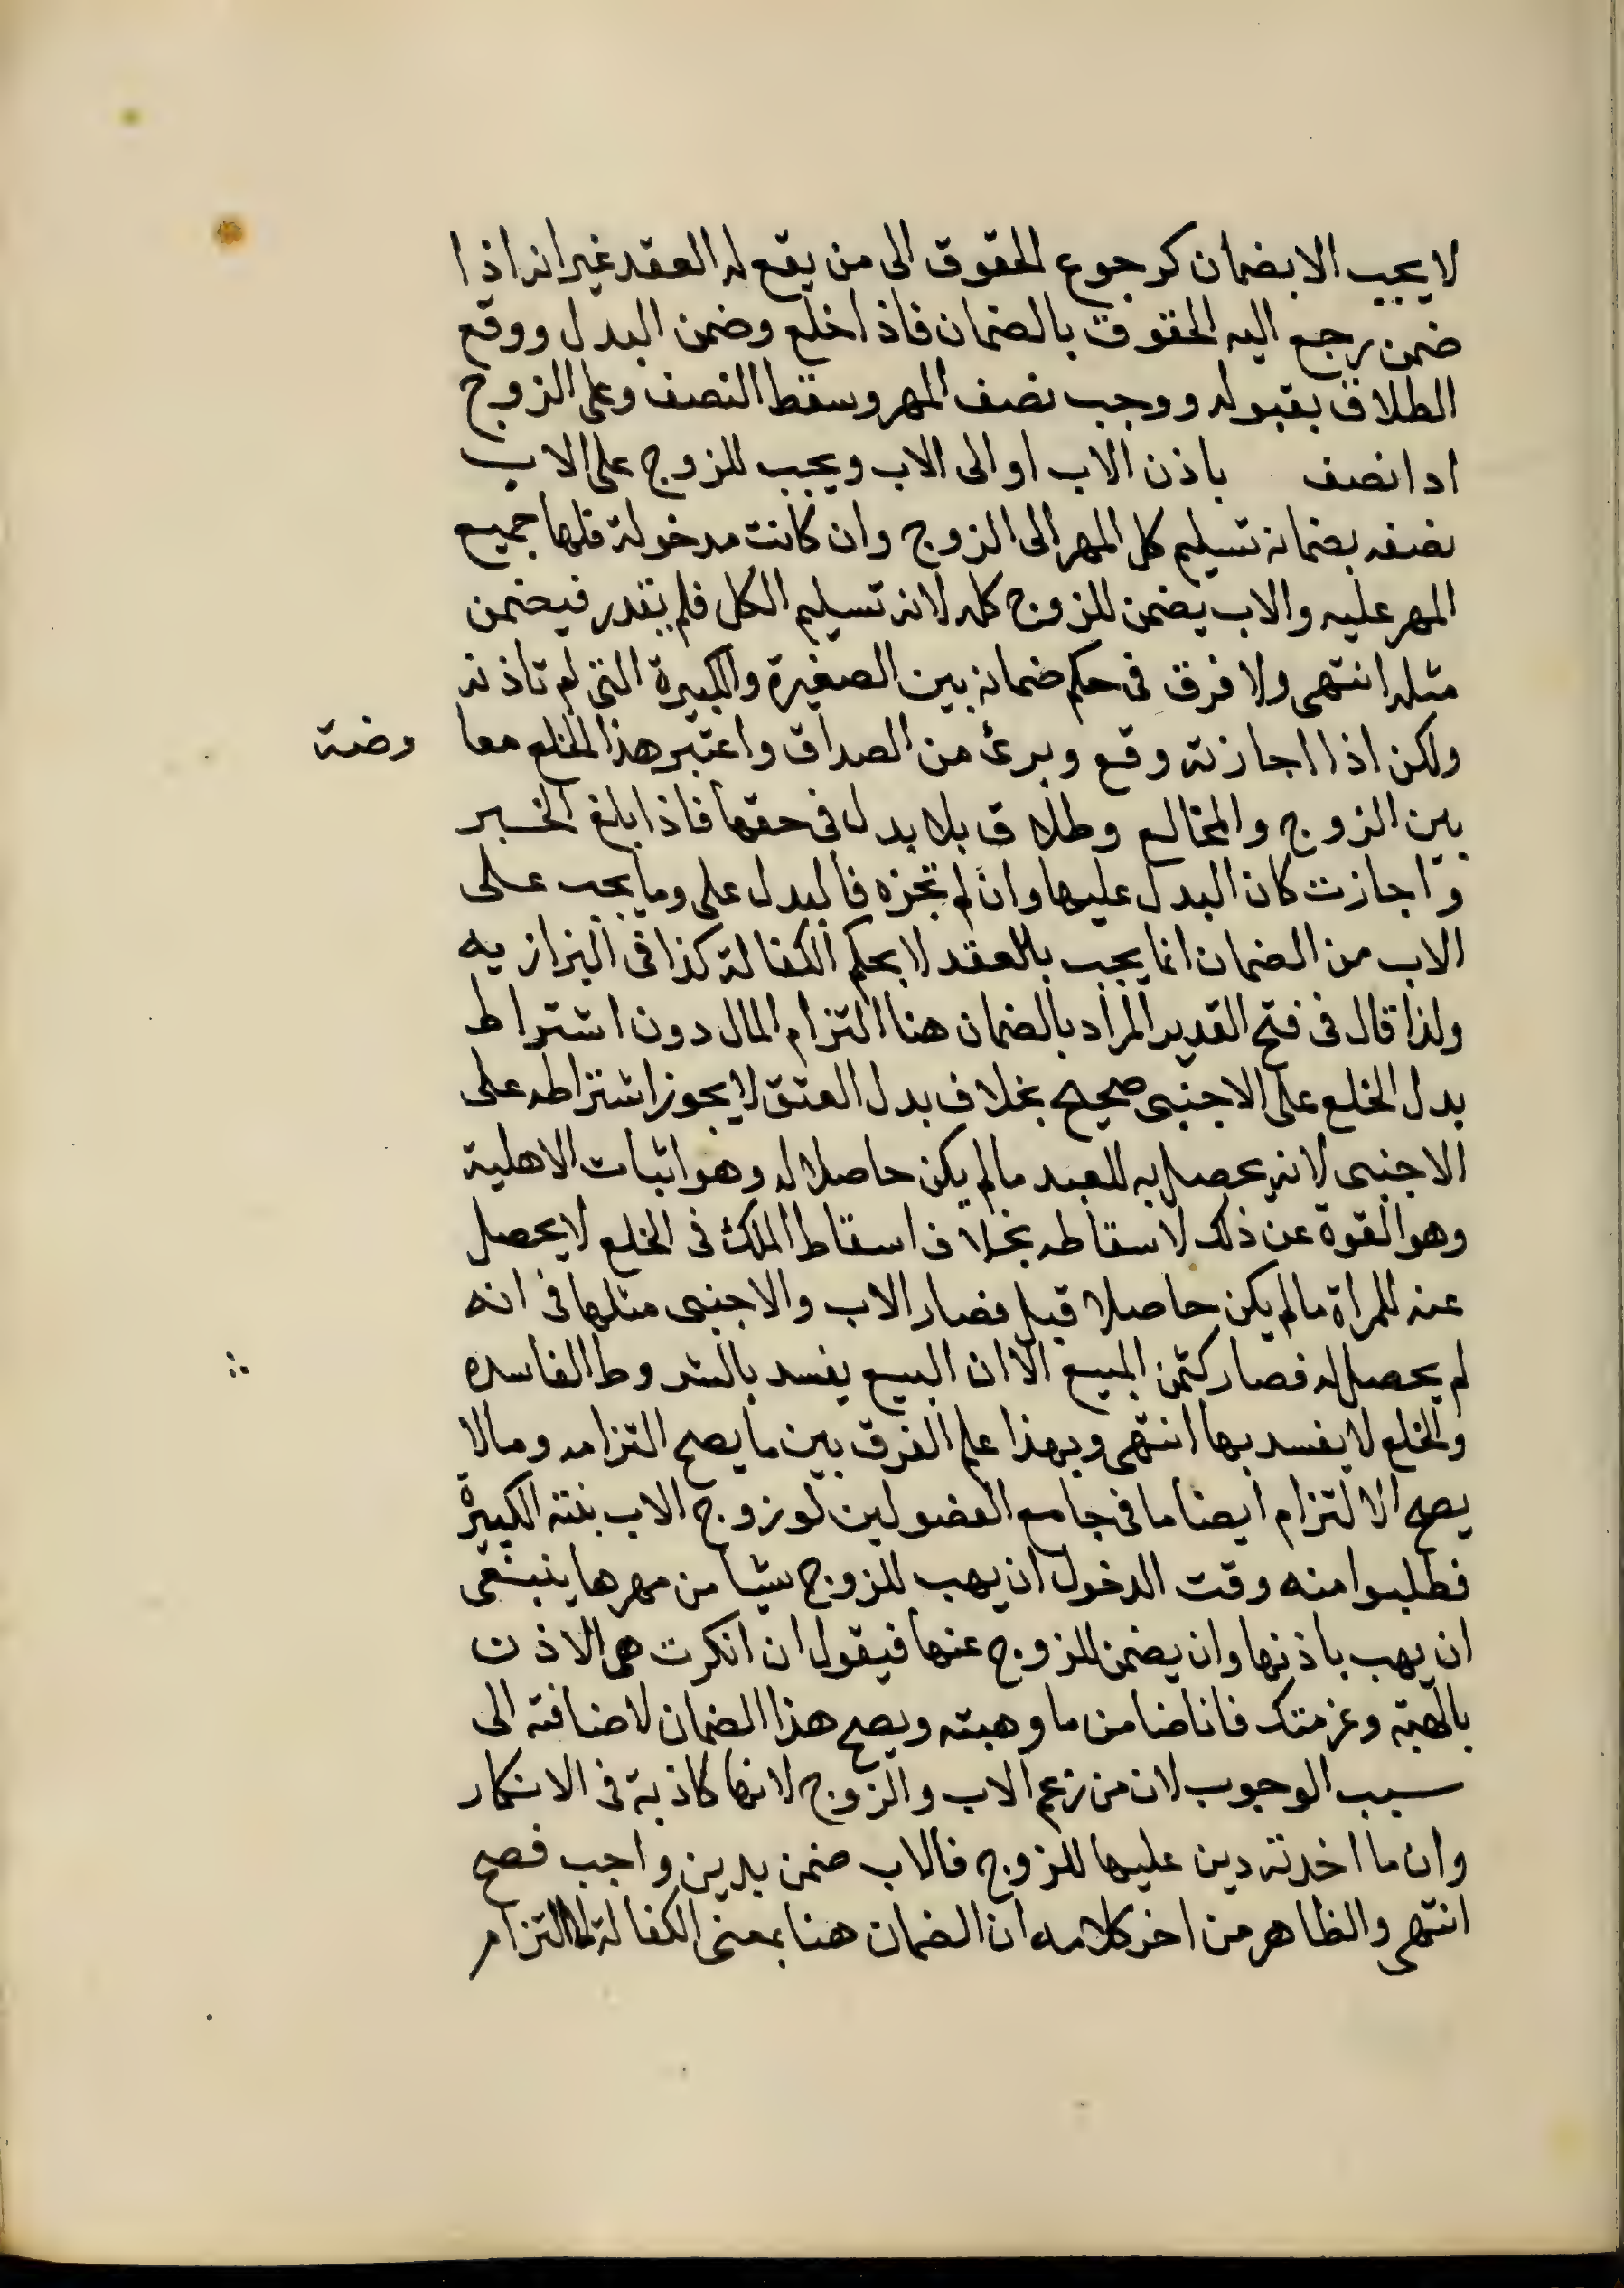 لا يجب الا بضمان كرجوع الحقوق الى من يقع له العقد غير انه اذا
ضمن رجع اليه الحقوق بالضمان فاذا خلع وضمن البدل ووقع
الطلاق بقبوله ووجب نصف المهر وسقط النصف وعلى الزوج
ادا نصف باذن الاب او الى الاب ويجب للزوج على الاب
نصفه بضمانه تسليم كل المهر الى الزوج وان كانت مدخولة فلها جميع
المهر عليه والاب يضمن للزوج كله لانه تسليم الكل فلم يقدر فيضمن
مثله انتهى ولا فرق فى حكم ضمانه بين الصغيرة والكبيرة التى لم تاذنه
ولكن اذا اجازته وقع وبرئ من الصداق واعتبر هذا الخلع معا وضة
بين الزوج والمخالع وطلاق بلا بدل فى حقها فاذا بلغ الخبر
واجازت كان البدل عليها وان لم تجزه فالبدل على وما يجب على
الاب من الضمان انما يجب بالعقد لا بحكم الكفالة كذا فى البزازيه
ولذا قال فى فتح القدير المراد بالضمان هنا التزام المال دون اشتراط
بدل الخلع على الاجنبى صحيح بخلاف بدل العتق لا يجوز اشتراطه على
الاجنبى لانه يحصل به للعبد مالم يكن حاصلا له وهو اثبات الاهلية
وهو القوة عن ذلك لاسقاطه بخلاف اسقاط الملك فى الخلع لا يحصل
عنه للمراة مالم يكن حاصلا قبل فصار الاب والاجنبى مثلها فى انه
لم يحصل له فصار كثمن المبيع الا ان البيع يفسد بالشروط الفاسده
والخلع لا يفسد بها انتهى وبهذا علم الفرق بين ما يصح التزامه ومالا
يصح الالتزام ايضا ما فى جامع الفضولين لو زوج الاب بنته الكبيرة
فطلبوا منه وقت الدخول ان يهب للزوج شيا من مهرها ينبغى
ان يهب باذنها وان يضمن للزوج عنها فيقول ان انكرت هى الاذن
بالهبة وغرمتك فانا ضامن ما وهبته ويصح هذا الضمان لاضافته الى
سبب الوجوب لان من زعم الاب والزوج لانها كاذبة فى الانكار
وان ما اخذته دين عليها للزوج فالاب ضمن بدين واجب فصح
انتهى والظاهر من اخر كلامه ان الضمان هنا بمعنى الكفالة لا التزام